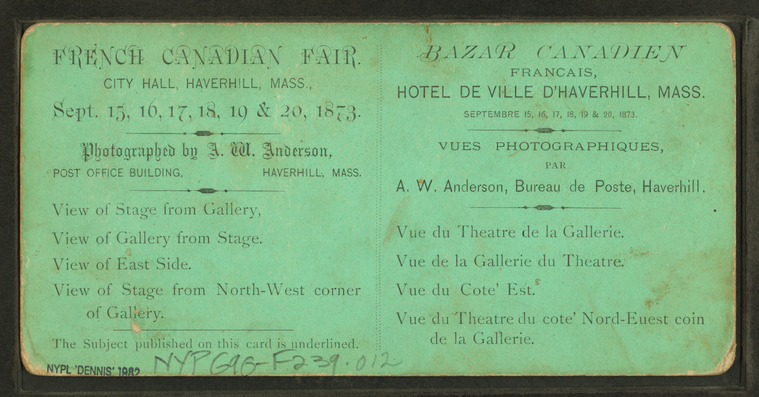 FRENCH CANADIAN FAIR.
CITY HALL, HAVERHILL, MASS.,
Sept. 15, 16, 17, 18, 19 & 20, 1873.
Photographed by A. W. Anderson,
POST OFFICE BUILDING, HAVERHILL, MASS.
View of Stage from Gallery,
View of Gallery from Stage.
View of East Side.
View of Stage from North-West corner
of Gallery.
The Subject published on this card is underlined.
NYPL 'DENNIS' 1982
NYPG96-F239.012
BAZAR CANADIEN
FRANCAIS,
HOTEL DE VILLE D'HAVERHILL, MASS.
SEPTEMBRE 15, 16, 17, 18, 19 & 20, 1873.
VUES PHOTOGRAPHIQUES,
PAR
A. W. Anderson, Bureau de Poste, Haverhill.
Vue du Theatre de la Gallerie.
Vue de la Gallerie du Theatre.
Vue du Cote' Est.
Vue du Theatre du cote' Nord-Euest coin
de la Gallerie.